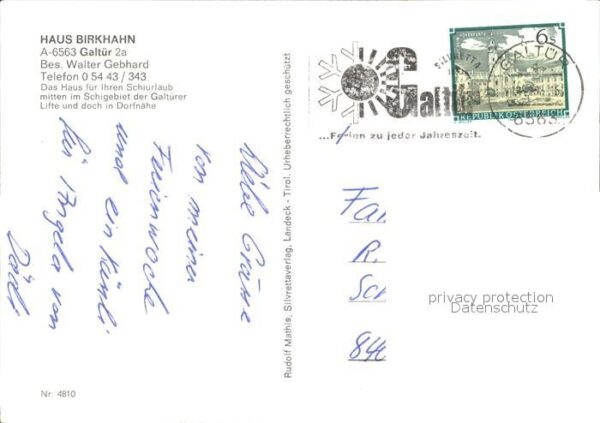 HAUS BIRKHAHN
A-6563 Galtür 2a
Bes. Walter Gebhard
Telefon 0 54 43 / 343
Das Haus für Ihren Schiurlaub
mitten im Schigebiet der Galtürer
Lifte und doch in Dorfnähe
Liebe Grüsse
von meiner
Ferienwoche
und ein
für Angela von
Nr. 4810
Rudolf Mathis, Silvrettaverlag, Landeck - Tirol. Urheberrechtlich geschützt
SILVRETTA
Galtür
...Ferien zu jeder Jahreszeit.
6S
REPUBLIK ÖSTERREICH
GALTÜR
6563
Fa
R.
Sc
84
privacy protection
Datenschutz